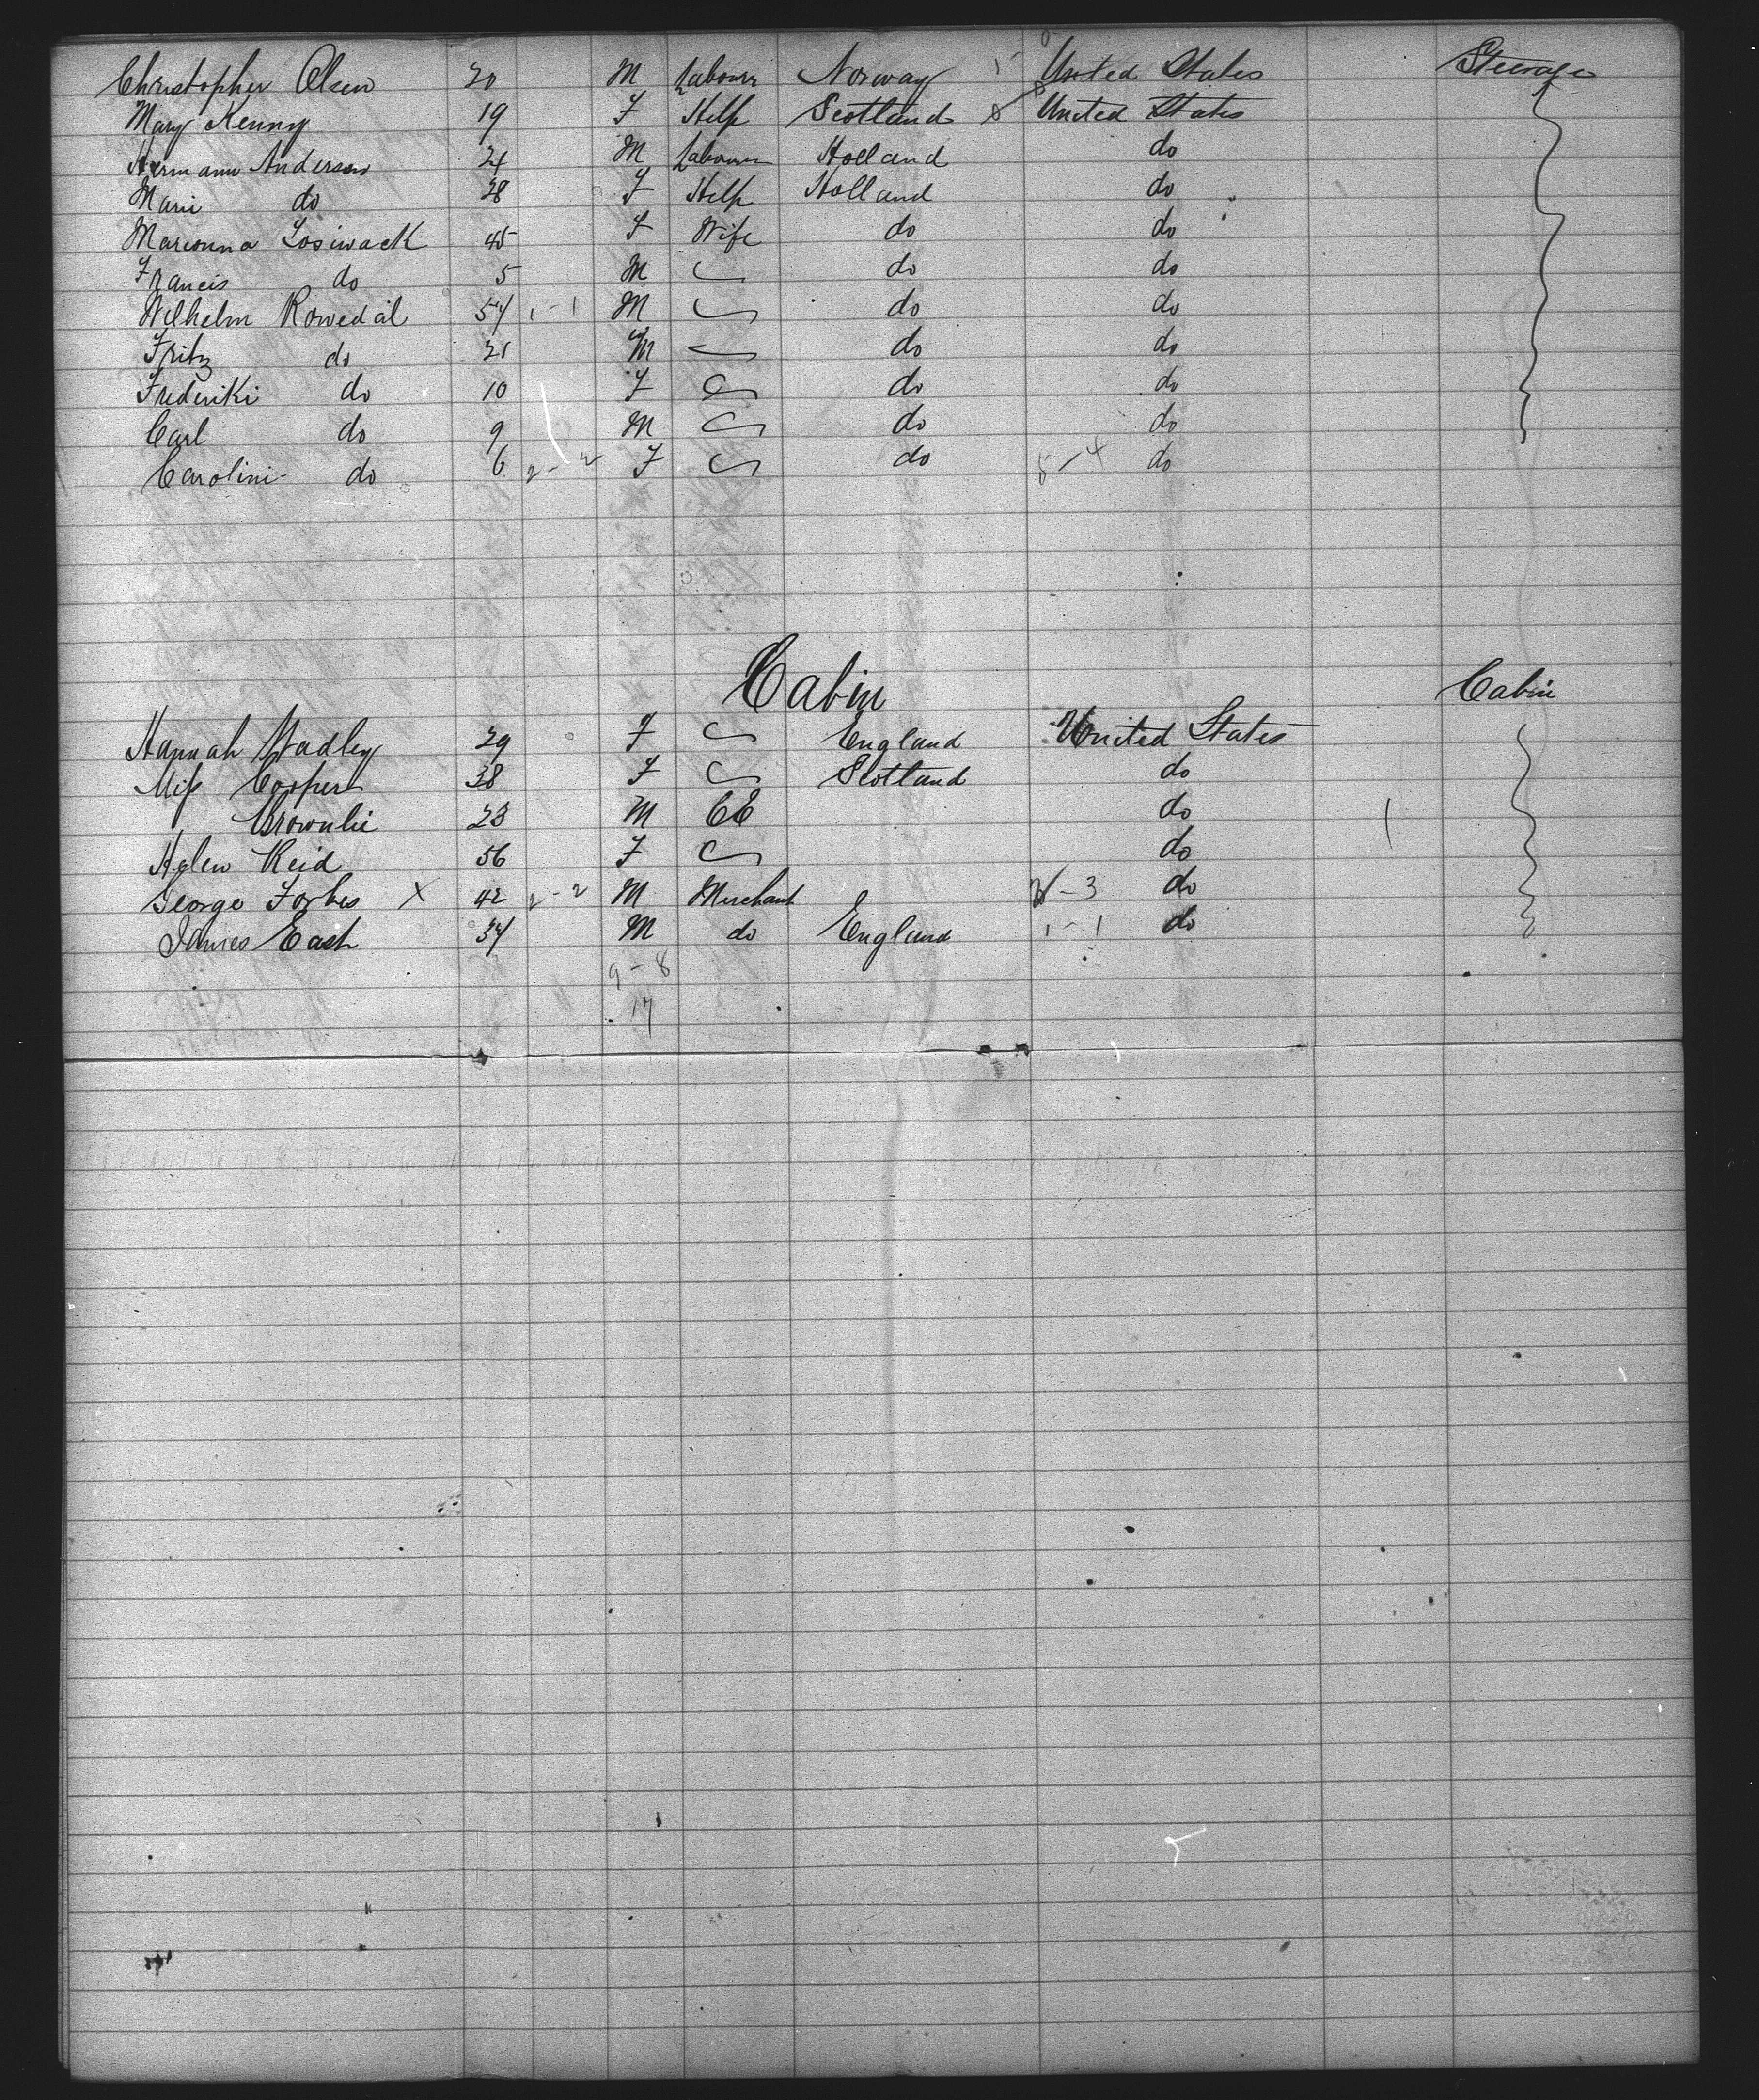 Christopher Olsen 20 M Labourer Norway 1 - 0 United States Steerage
Mary Kenny 19 F Help Scotland United States
Hermann Anderson 24 M Labourer Holland do
Marie do 28 F Help Holland do
Marianna Losiwack 45 F Wife do do
Francis do 5 M do do
Wilhelm Rowedal 54 1 - 1 M do do
Fritz do 21 M do do
Frederiki do 10 F do do
Carl do 9 M do do
Carolini do 6 2 - 2 F do 5 - 4 do
Cabin
Cabin
Hannah Hadley 29 F England United States
Miss Cooper 38 F Scotland do
Brownlie 23 M CE do
Helen Reid 56 F do
George Forbes X 42 2 - 2 M Merchant - 3 do
James Eash 34 M do England 1 - 1 do
9 - 8
17